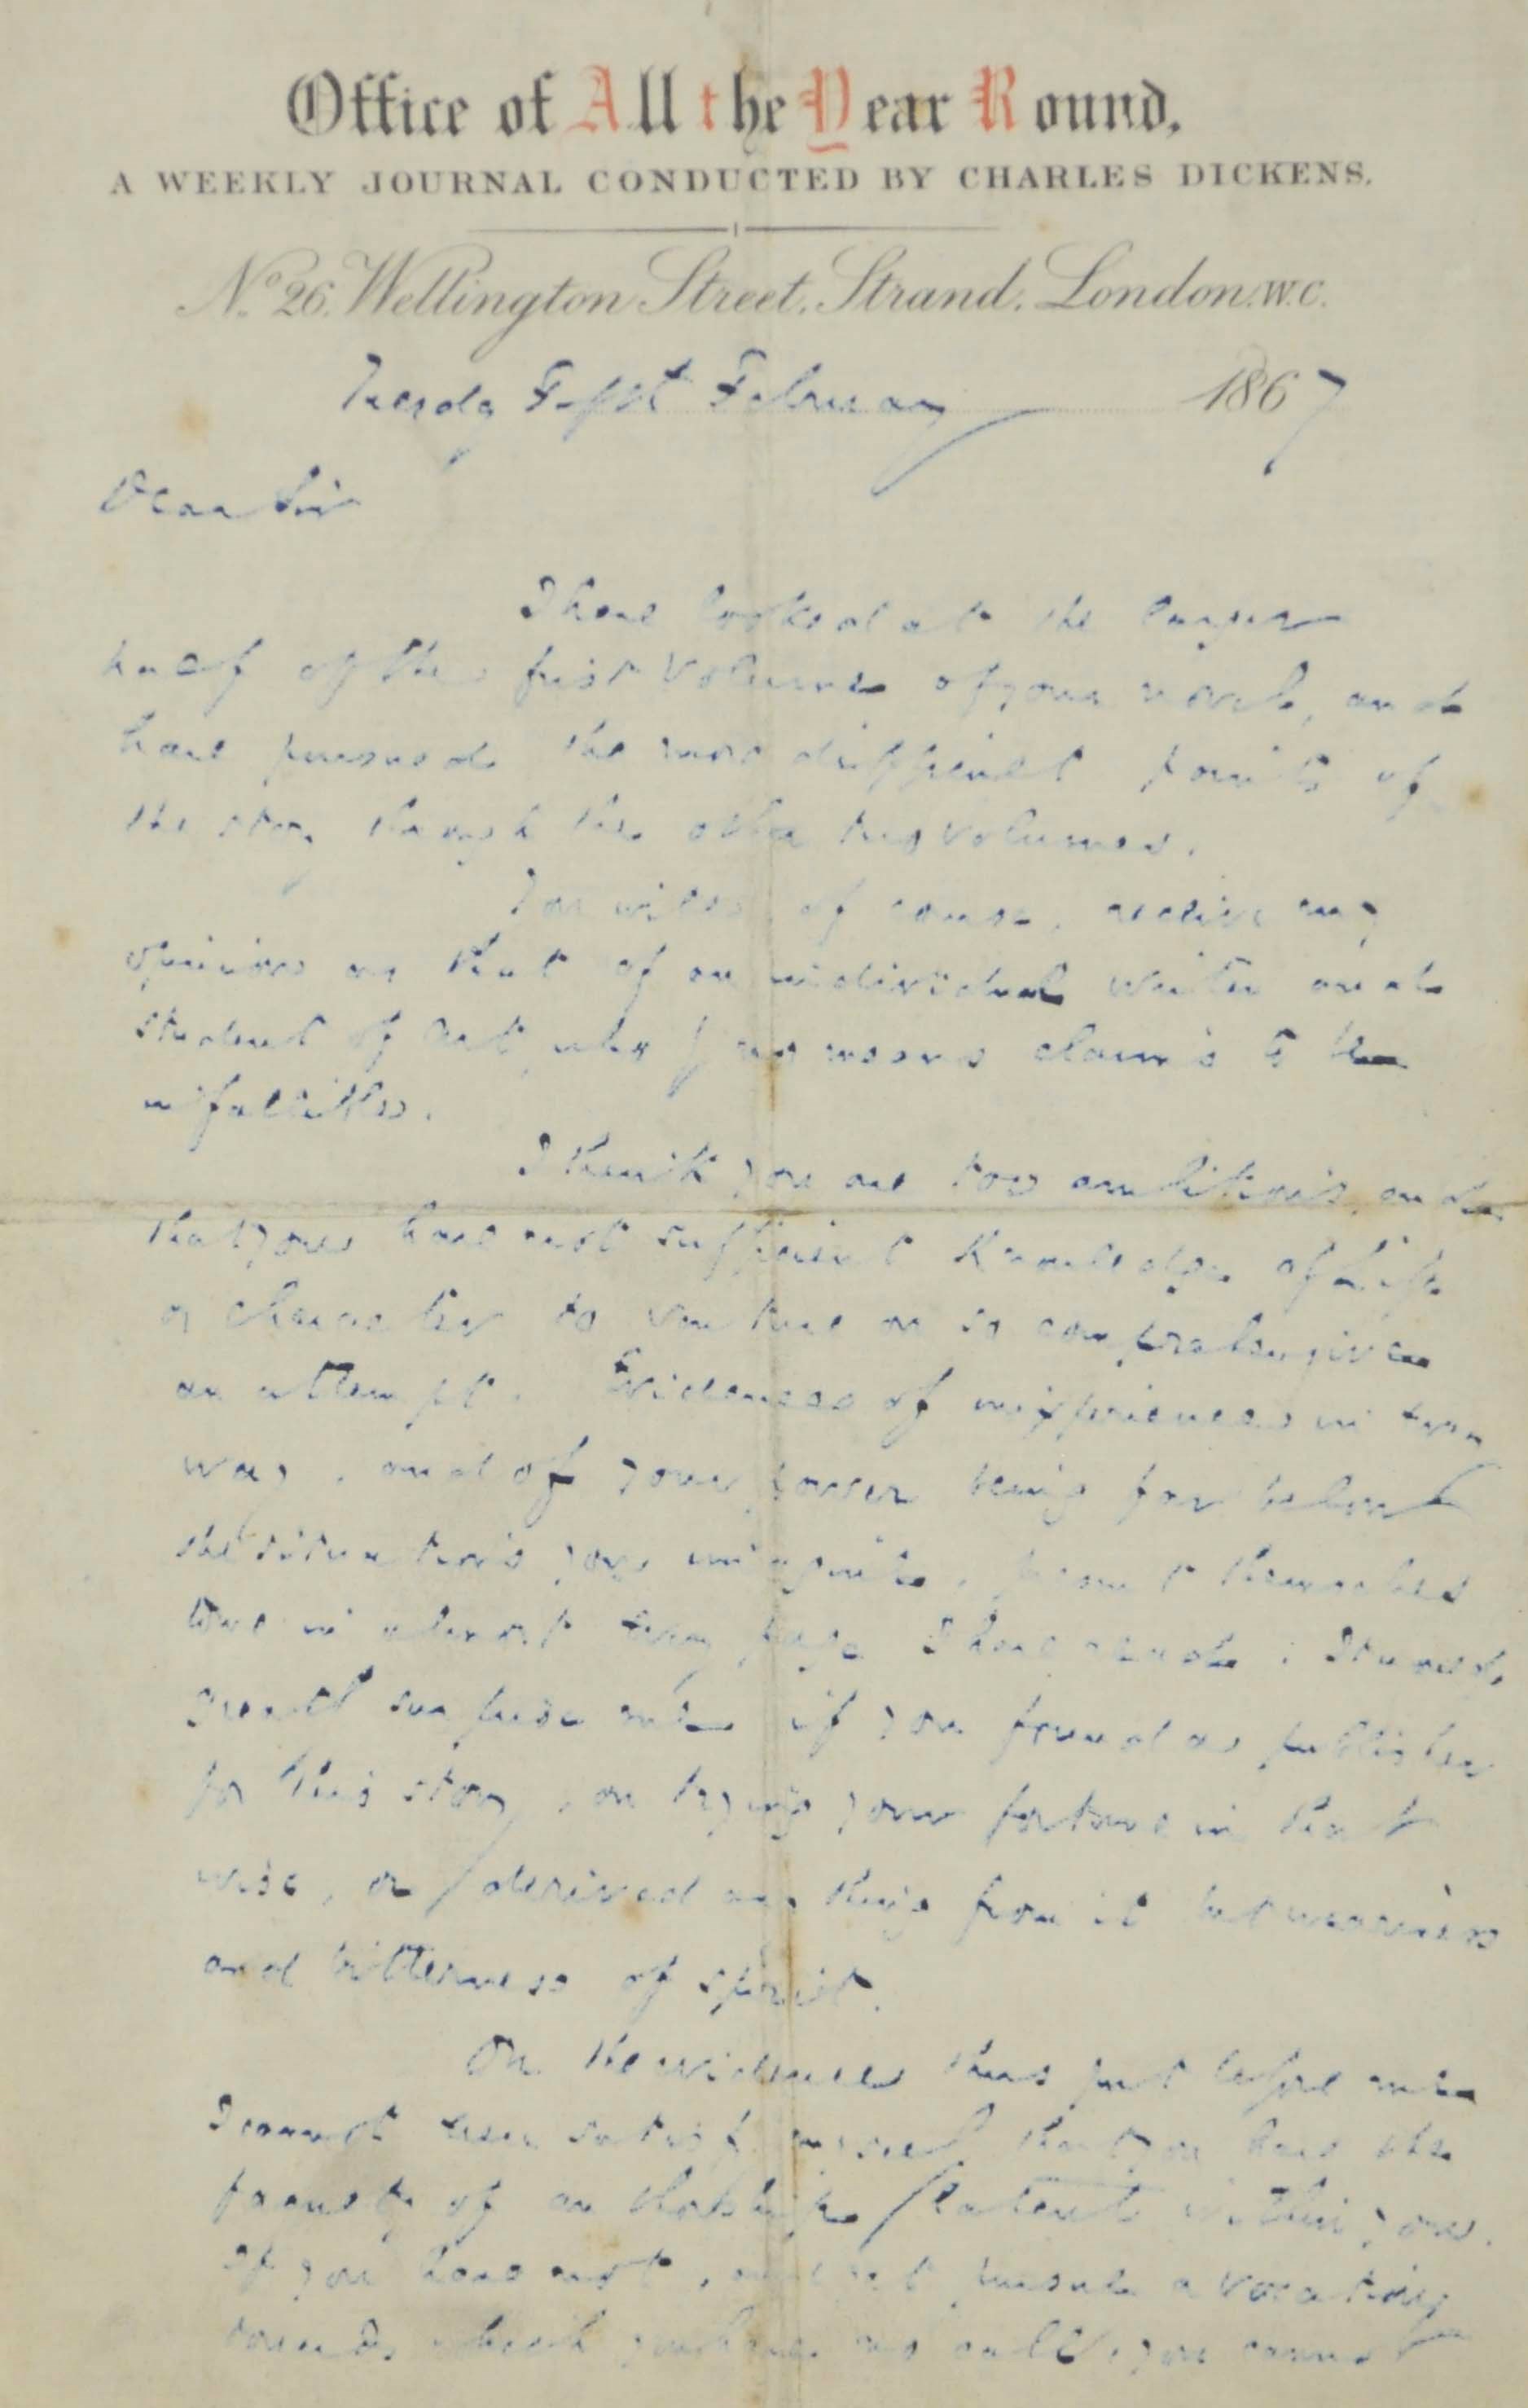 Office of All the Year Round,
A WEEKLY JOURNAL CONDUCTED BY CHARLES DICKENS.
No. 26, Wellington Street, Strand, London. W.C.
Tuesday Fifth February 1867
Dear Sir
I have looked at the larger
half of the first volume of your novel, and
have pursued the more difficult points of
the story through the other two volumes.
You will, of course, receive my
opinion as that of an individual writer and
student of art, who by no means claims to be
infallible.
I think you are too ambitious, and
that you have not sufficient knowledge of life
or character to venture on so comprehensive
an attempt. Evidences of inexperience in every
way, and of your power being far below
the situations you imagine, present themselves
to me in almost every page I have read. It would
greatly surprise me if you found a publisher
for this story, on trying your fortune in that
wise, or derived anything from it but weariness
and bitterness of spirit.
On the evidence thus put before me
I cannot even satisfy myself that you have the
faculty of authorship latent within you.
If you have not, and yet pursue a vocation
towards which you have no call, you cannot